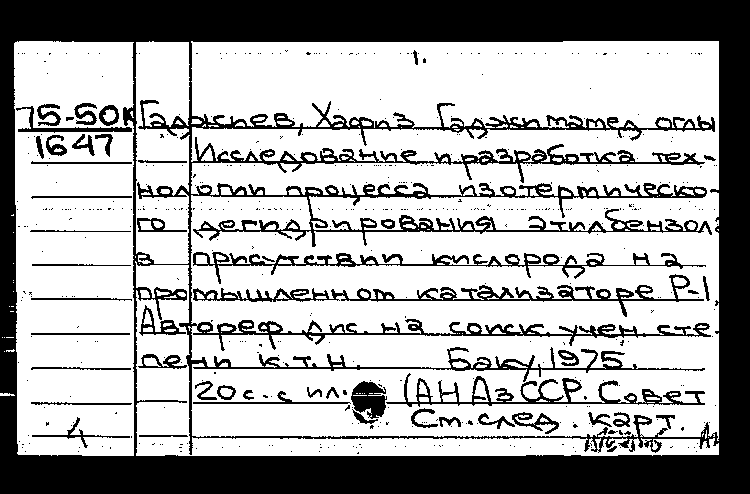 1.
75-50к Гаджиев, Хафиз Гаджимамед оглы
1647 Исследование и разработка тех-
нологии процесса изотермическо-
го дегидрирования этилбензола
в присутствии кислорода на
промышленном катализаторе Р-1.
Автореф. дис. на соиск. учен. сте-
пени к.т.н. Баку, 1975.
20 с. с ил. (АН АзССР. Совет
См. след. карт.